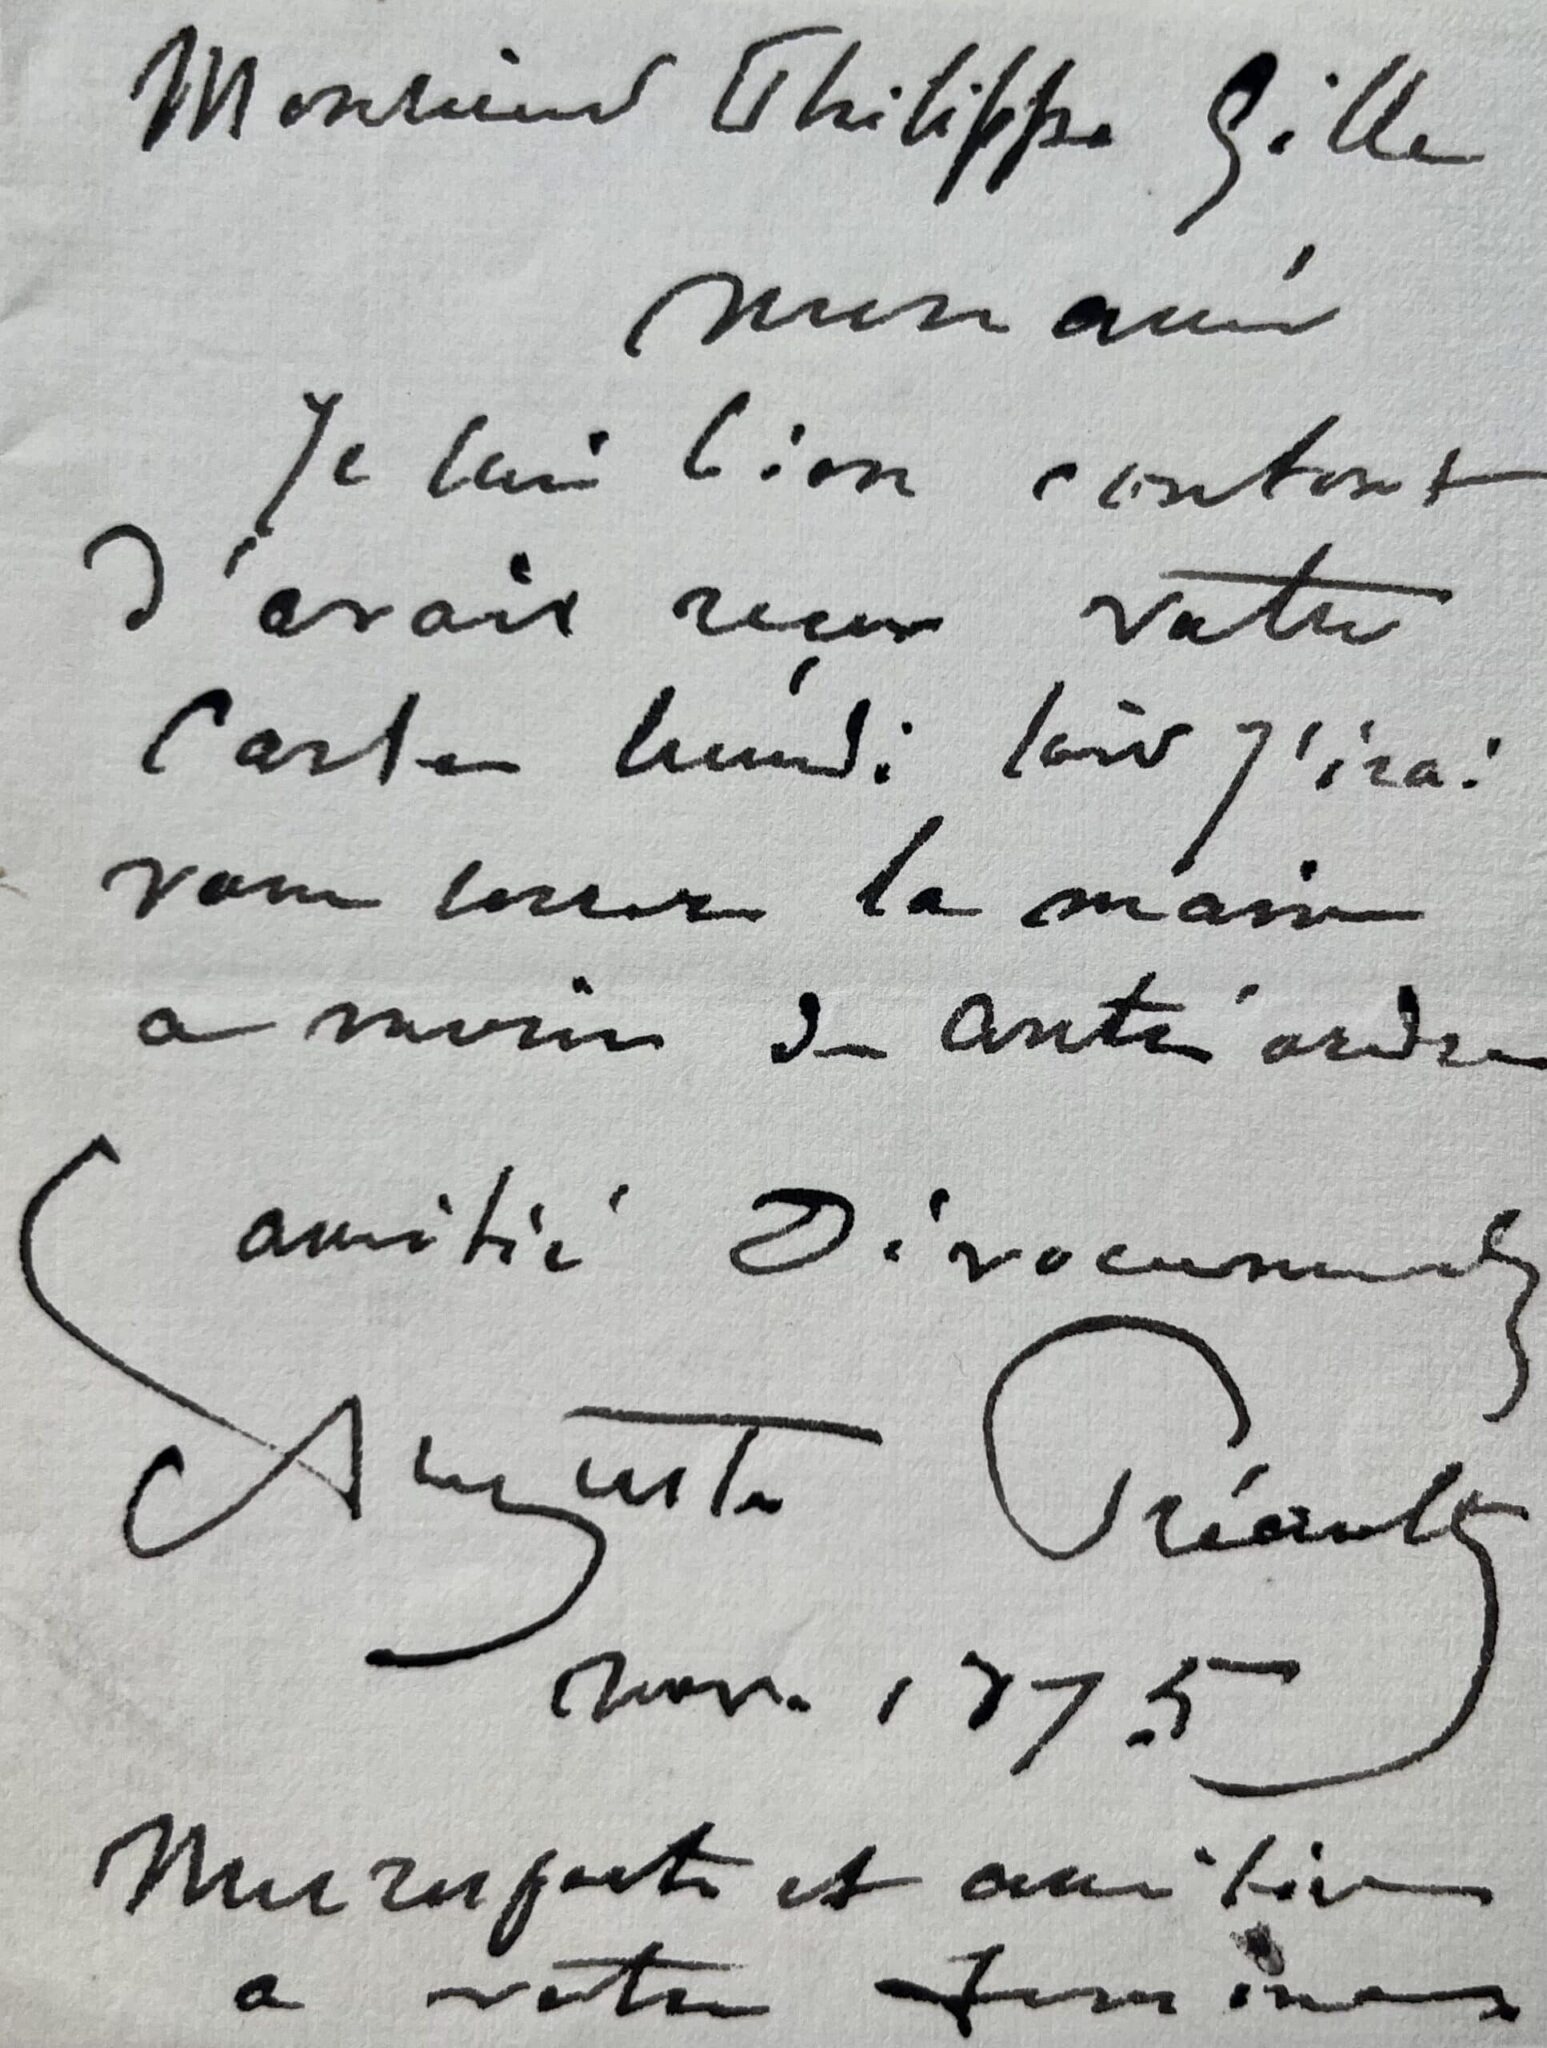 Monsieur Philippe Gille
mon ami
Je suis bien content
d'avoir reçu votre
Carte lundi soir j'irai
vous serrer la main
a moins de
amitié Dévouement
Auguste Préault
nov. 1875
Mes respects et amitiés
a votre